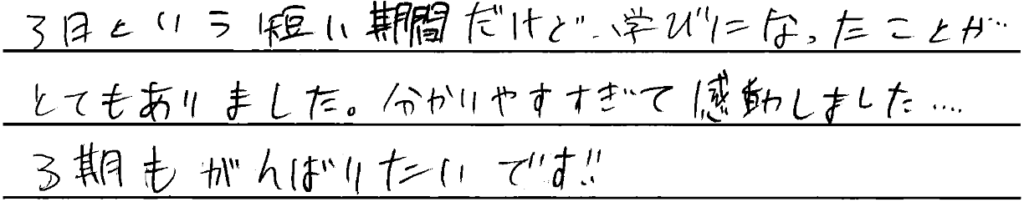 3日という短い期間だけど、学びになったことが
とてもありました。分かりやすすぎて感動しました....
3期もがんばりたいです!!